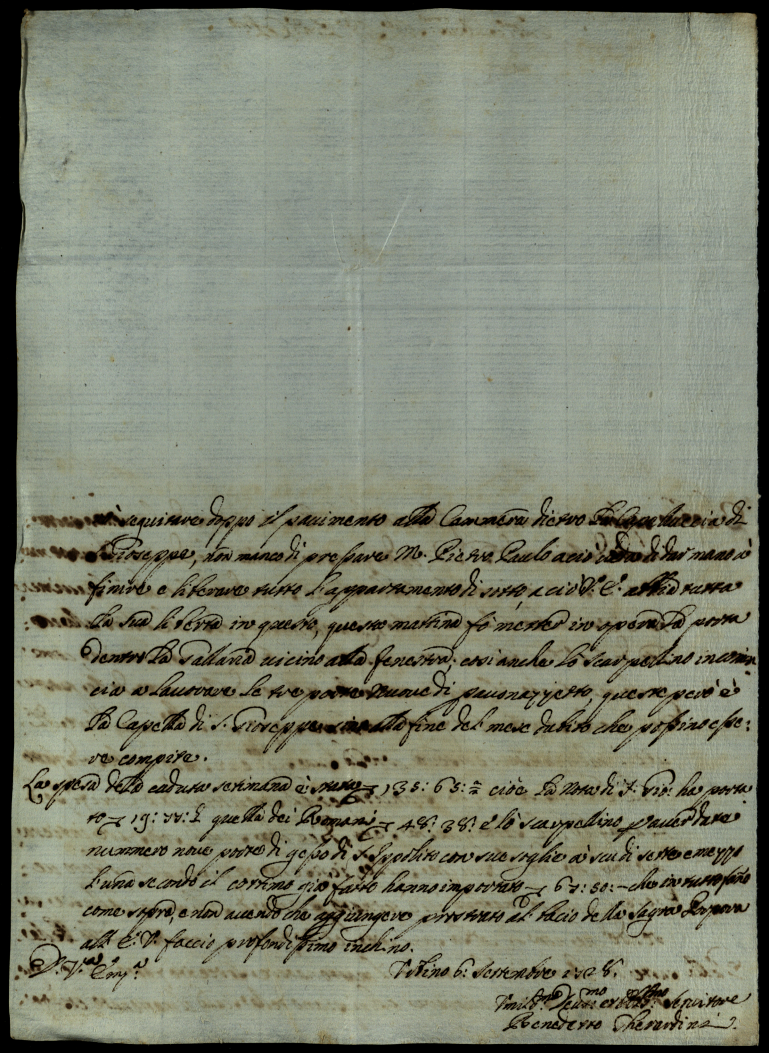 à sequitare doppo il pavimento alla Cammera dietro la Capelluccia di
S. Gioseppe, non manco di pressare M.º Pietro Paulo acciò di dar mano à
finire e liberare tutto l'appartamento di sotto acciò V. E. abbia tutta
la sua libertà in questo, questa mattina fò metter in opera la porta
dentro la Gallaria vicino alla fenestra; così anche lo scarpellino incomin
cia a lavorare le tre porte nuove di pavonazzetto, queste però è
la Capella di S. Gioseppe sino alla fine del mese dubito che possino esse:
re compite.
La spesa della caduta setimana è stata 135: 65: cioè la Nota di S. Gio: ha porta
to 19: 77: quella dei 48: 38: e lo scarpellino p auer date
nummero nove porte di gesso di S. Ippolito con sue soglie à scudi sette e mezzo
l'una secondo il cottimo già fatto hanno importato 67: 50: – che in tutto fanno
come sopra, e non avendo che aggiungere prostrato al bacio della Sagra Porpora
all' E. V. faccio profondissimo inchino.
D. V.ra Em.a
Urbino 6: Settembre 1728.
Umil.mo Deu.mo ed Obb.mo Servitore
Benedetto Gherardini.